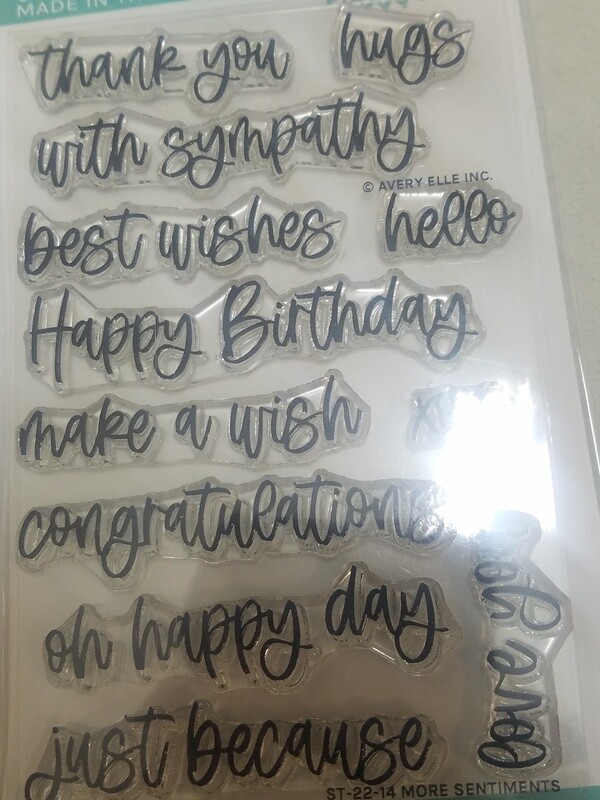 MADE IN
thank you
hugs
with sympathy
© AVERY ELLE INC.
best wishes
hello
Happy Birthday
make a wish
congratulations
love you
oh happy day
just because
ST-22-14 MORE SENTIMENTS